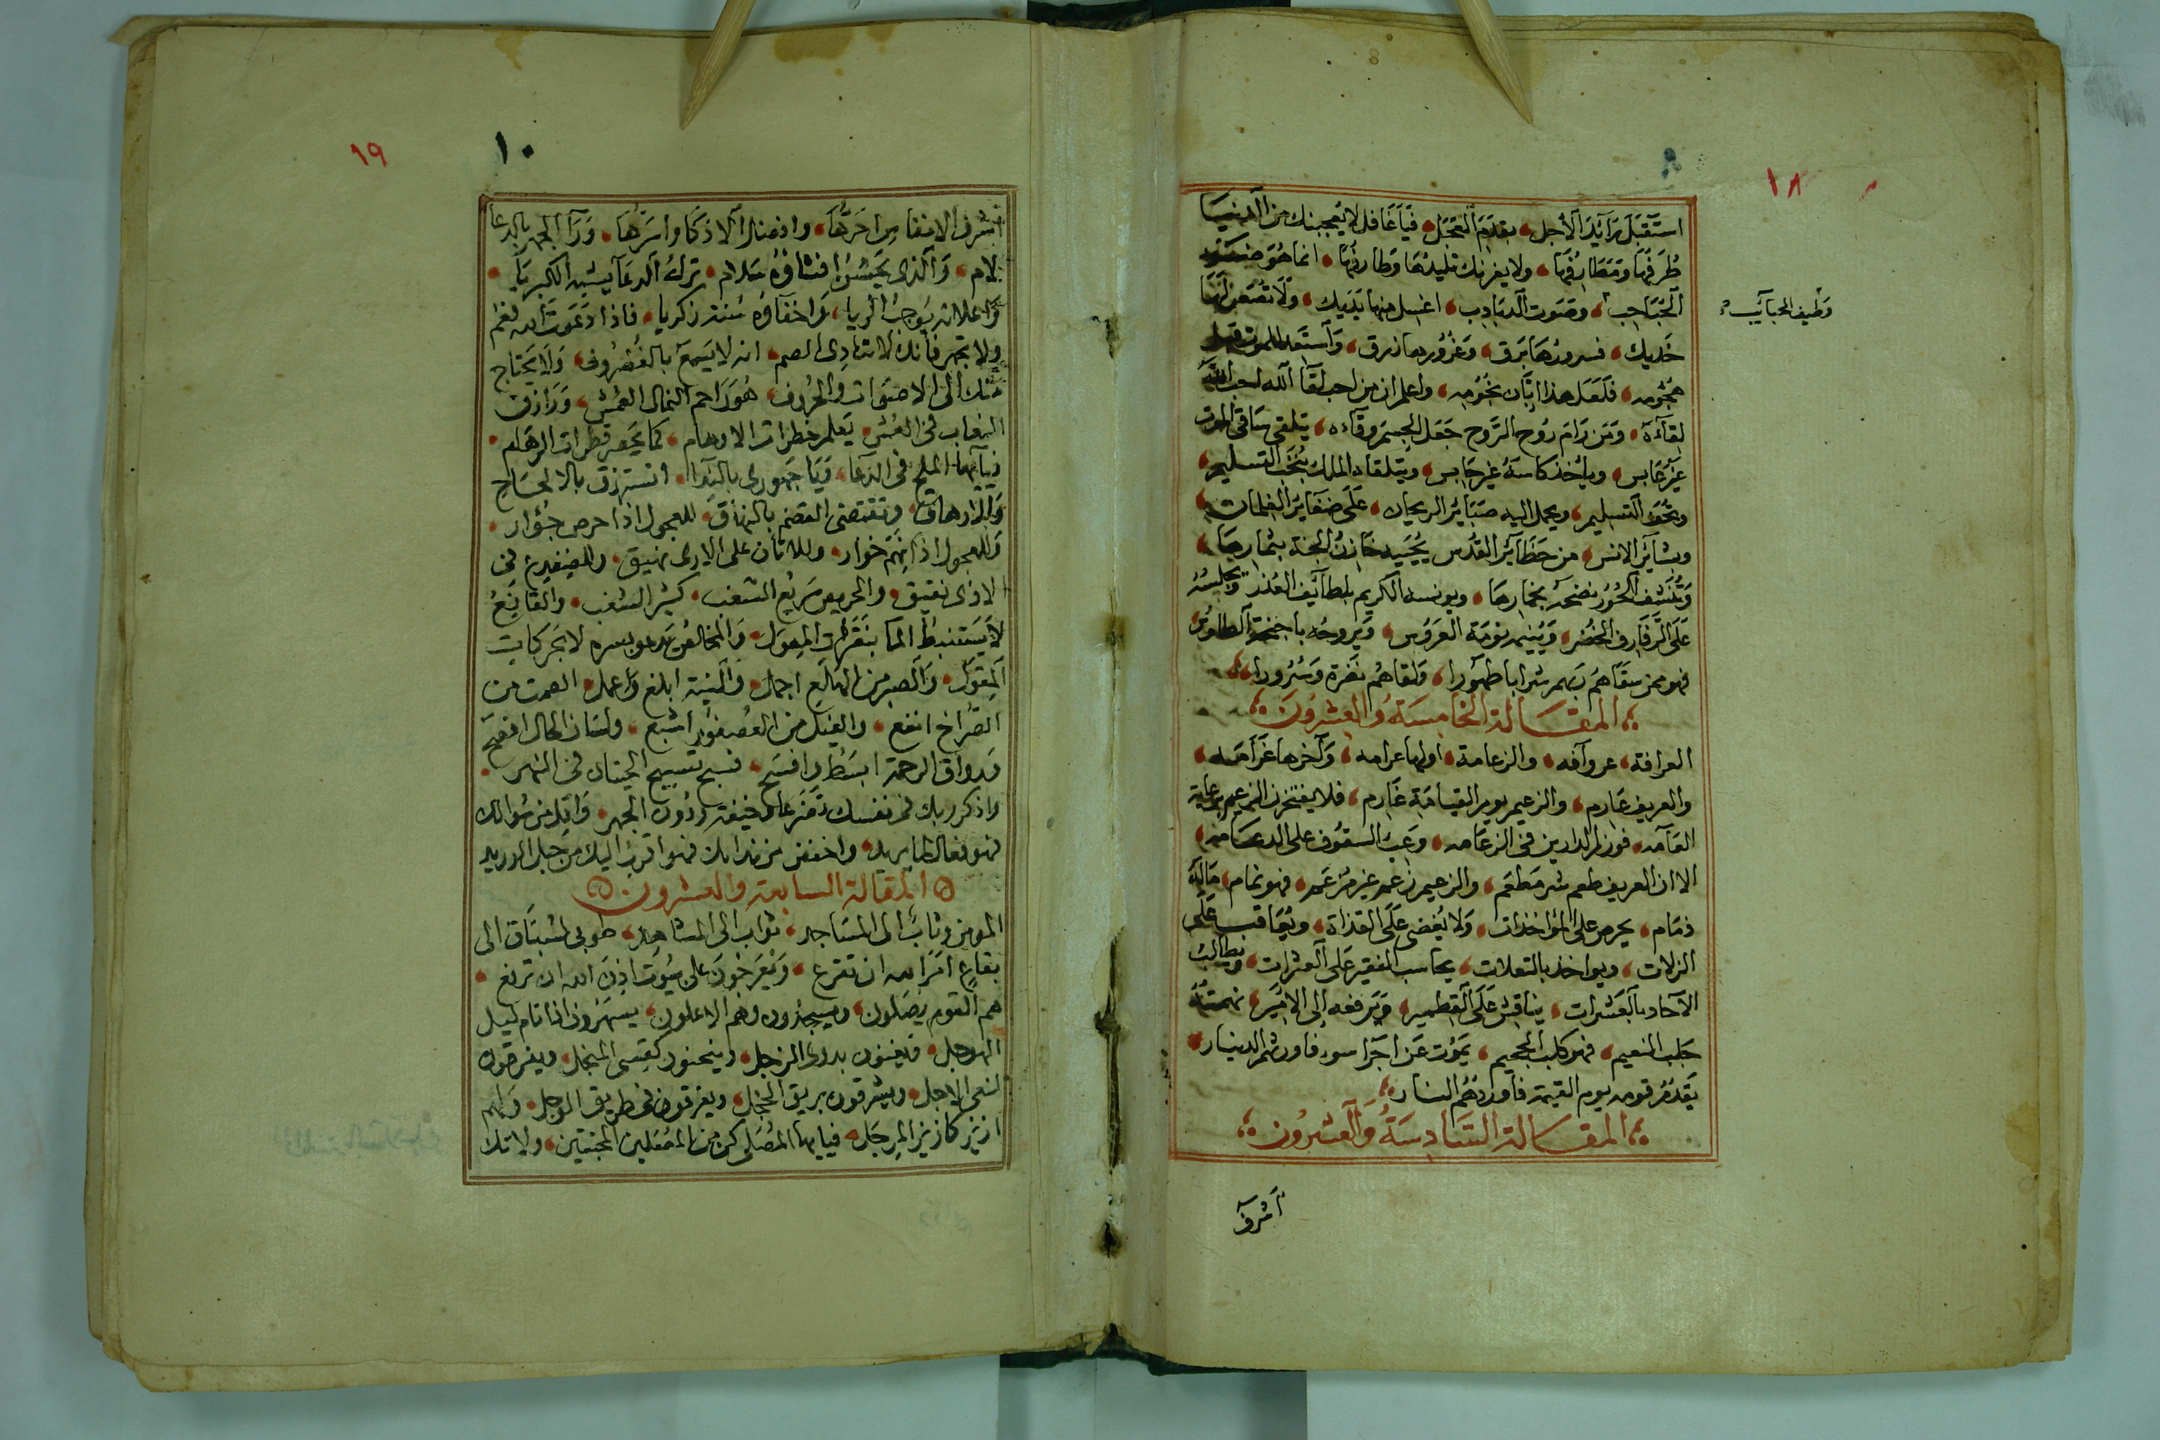 ١٨
استقبل رائد الأجل بقدم العجل فيا غافل لا يعجبنك من الدنيا
طرفها ومطارفها ولا يغرنك تليدها وطارفها انما هو ضوء
الحباحب وصوت الدبادب اغسل منها يديك ولا تصعر لها
وطيف الحبائب
خديك فسرورها برق وغرورها زرق واستعد للموت قبل
هجومه فلعل هذا ابان نجومه واعلم ان من احب لقاء الله احب الله
لقاءه ومن رام روح الروح جعل الجسم وقاءه يتلقى ساقى الموت
غير عابس وياخذ كاسه غير حابس ويتلقاه الملك بنخب التسليم
وتحف التسليم ويحمل اليه صبائر الريحان على ضفاير الغلمان
وبشائر الانس من حظائر القدس يحييه خازن الجنة بثمارها
وتنشف الحور نضحه بخمارها ويونسه الكريم بلطائف العذر ويجلسه
على الرفارف الخضر وينيمه نومة العروس ويروحه باجنحة الطاوس
فهو ممن سقاهم ربهم شرابا طهورا ولقاهم نضرة وسرورا
المقالة الخامسة والعشرون
العرافة عر وآفه والزعامة اولها عرامه وآخرها غرامه
والعريف عارم والزعيم يوم القيامة غارم فلا يفتخرن الزعيم برعاية
العامه فويل للدارين فى الزعامه وعبء السقوف على الدعامه
الا ان العريف طعم شر مطعم والزعيم زعم غير مزعم فهو نمام ماله
ذمام يحرص على المواخذات ولا يغضى على القذاة ويعاقب على
الزلات ويواخذ بالتعلات يحاسب الفقير على العثرات ويطالب
الآحاد بالعشرات يناقش على القطمير ويرفعه الى الامير نهمته
جلب النعيم فهو كلب الجحيم يموت عن اجزا سود فاورثهم الدينار
يقدم قومه يوم القيمة فأوردهم النار
المقالة السادسة والعشرون
اشرف
١٩
١٠
اشرف الانفاس احرها وافضل الاذكار اسرها وراء الجهر بالدعا
لام والذى يحسن افشاؤه سلام ترك الدعا يشبه الكبريا
واعلانه يوجب الريا واخفاؤه سنة زكريا فاذا دعوت الله فغم
ولا تجهر فانك لا تنادى الصم انه لا يسمع بالغضروف ولا يحتاج
منك الى الاصوات والحروف هو راحم النمال العمش ورازق
النعاب فى العش يعلم خطرات الاوهام كما يحصر قطرات الرهام
فيايها الملح فى الدعا ويا جهورى بالندا اتسترزق بالالحاح
والارهاق وتقتضى القضيم بالنهاق للعجول اذا حرص جؤار
وللعجول اذا نهم خوار وللاتان على الارى نهيق وللضفدع فى
الاذى نقيق والحريص سريع الشغب كثير الشغب والقانع
لا يستنبط الما بنقرات المعول والمخالص يدعو بسره لا بحركات
المقول والصبر من الهالع اجمل والنية ابلغ واعمل الصمت من
الصراخ انفع والفيل من العصفور اشبع ولسان الحال افصح
ورواق الرحمة ابسط وافسح فسبح تسبيح الحيتان فى النهر
واذكر ربك فى نفسك تضرعا وخيفة ودون الجهر واقل من سؤالك
فهو فعال لما يريد واخفض من ندائك فهو اقرب اليك من حبل الوريد
المقالة السابعة والعشرون
المومن وثاب الى المساجد ثواب الى المشاهد طوبى لمشتاق الى
بقاع امر الله ان تقرع ويعرجون على بيوت اذن الله ان ترفع
هم القوم يصلون ويسجدون وهم الاعلون يسهرون اذا نام ليل
الهوجل فيغنون بدوى الزجل وينحنون كقسى المنجل ويفرقون
لنعى الاجل ويشرقون بريق الخجل ويغرقون فى طريق الوجل ولهم
ازيز كازيز المرجل فيايها المصلى كن من المقبلين المخبتين ولا تك